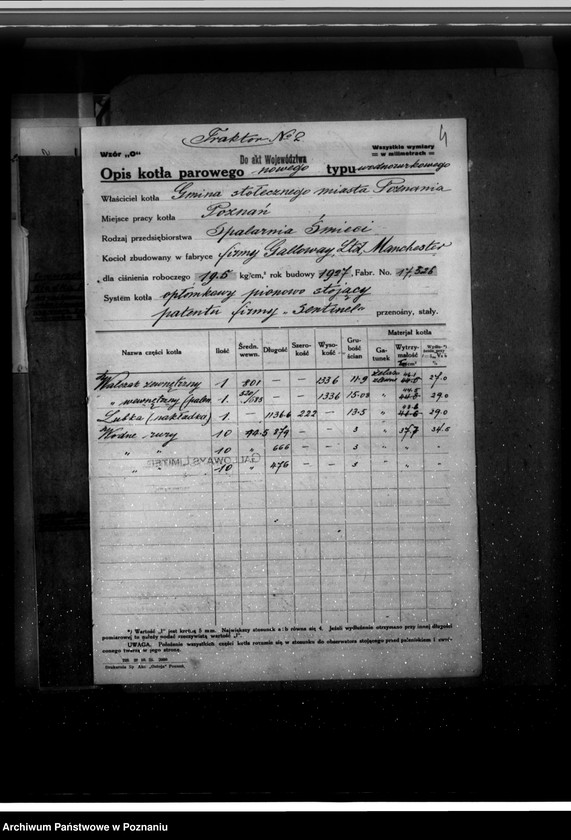 Traktor № 2
4
Wzór „O"
Do akt Województwa
Wszystkie wymiary
w milimetrach
Opis kotła parowego nowego typu wodnorurkowego
Właściciel kotła Gmina stołecznego miasta Poznania
Miejsce pracy kotła Poznań
Rodzaj przedsiębiorstwa Spalarnia Śmieci
Kocioł zbudowany w fabryce firmy Galloway Ltd, Manchester
dla ciśnienia roboczego 19.5 kg/cm,² rok budowy 1927, Fabr. No. 17,326
System kotła opłomkowy pionowo stojący
patentu firmy „Sentinel" przenośny, stały.
Nazwa części kotła Ilość Średn. wewn. Długość Szerokość Wysokość Grubość ścian Materjał kotła Gatunek Wytrzymałość
Walczak zewnętrzny 1 801 — — 1336 11.9 27.0
„ wewnętrzny 1. — — 1336 29.0
Łubka (nakładka) 1 — 1136.6 222 — 13.5 „ 29.0
Wodne rury 10 879 — — 3 „ 37.7
„ „ 10 „ 666 — — 3 „ „ „
„ „ 10 „ 476 — — 3 „ „ „
GALLOWAYS LIMITED
*) Wartość „l" jest 5 mm. Największy stosunek a : b równa się 4. Jeżeli wydłużenie otrzymano przy innej długości
pomiarowej to należy podać rzeczywistą wartość „l".
UWAGA. Położenie wszystkich części kotła rozumie się w stosunku do obserwatora stojącego przed paleniskiem i
zwróconego twarzą w jego stronę.
Drukarnia Sp. Akc. „Ostoja" Poznań.
Archiwum Państwowe w Poznaniu